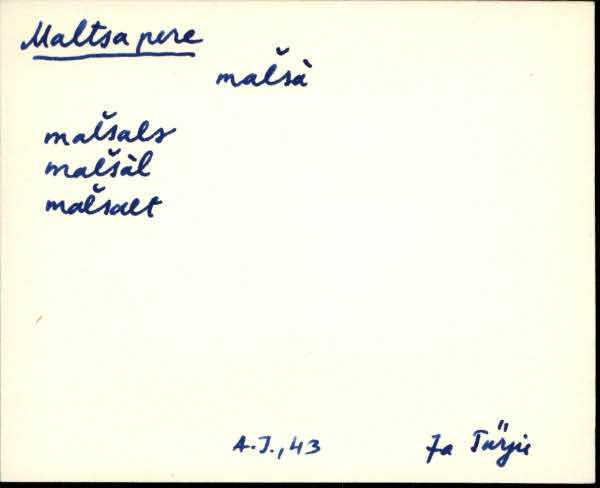 Maltsa pere
malšà
malšals
malšàl
malšalt
A.J.,43 Ja Türju